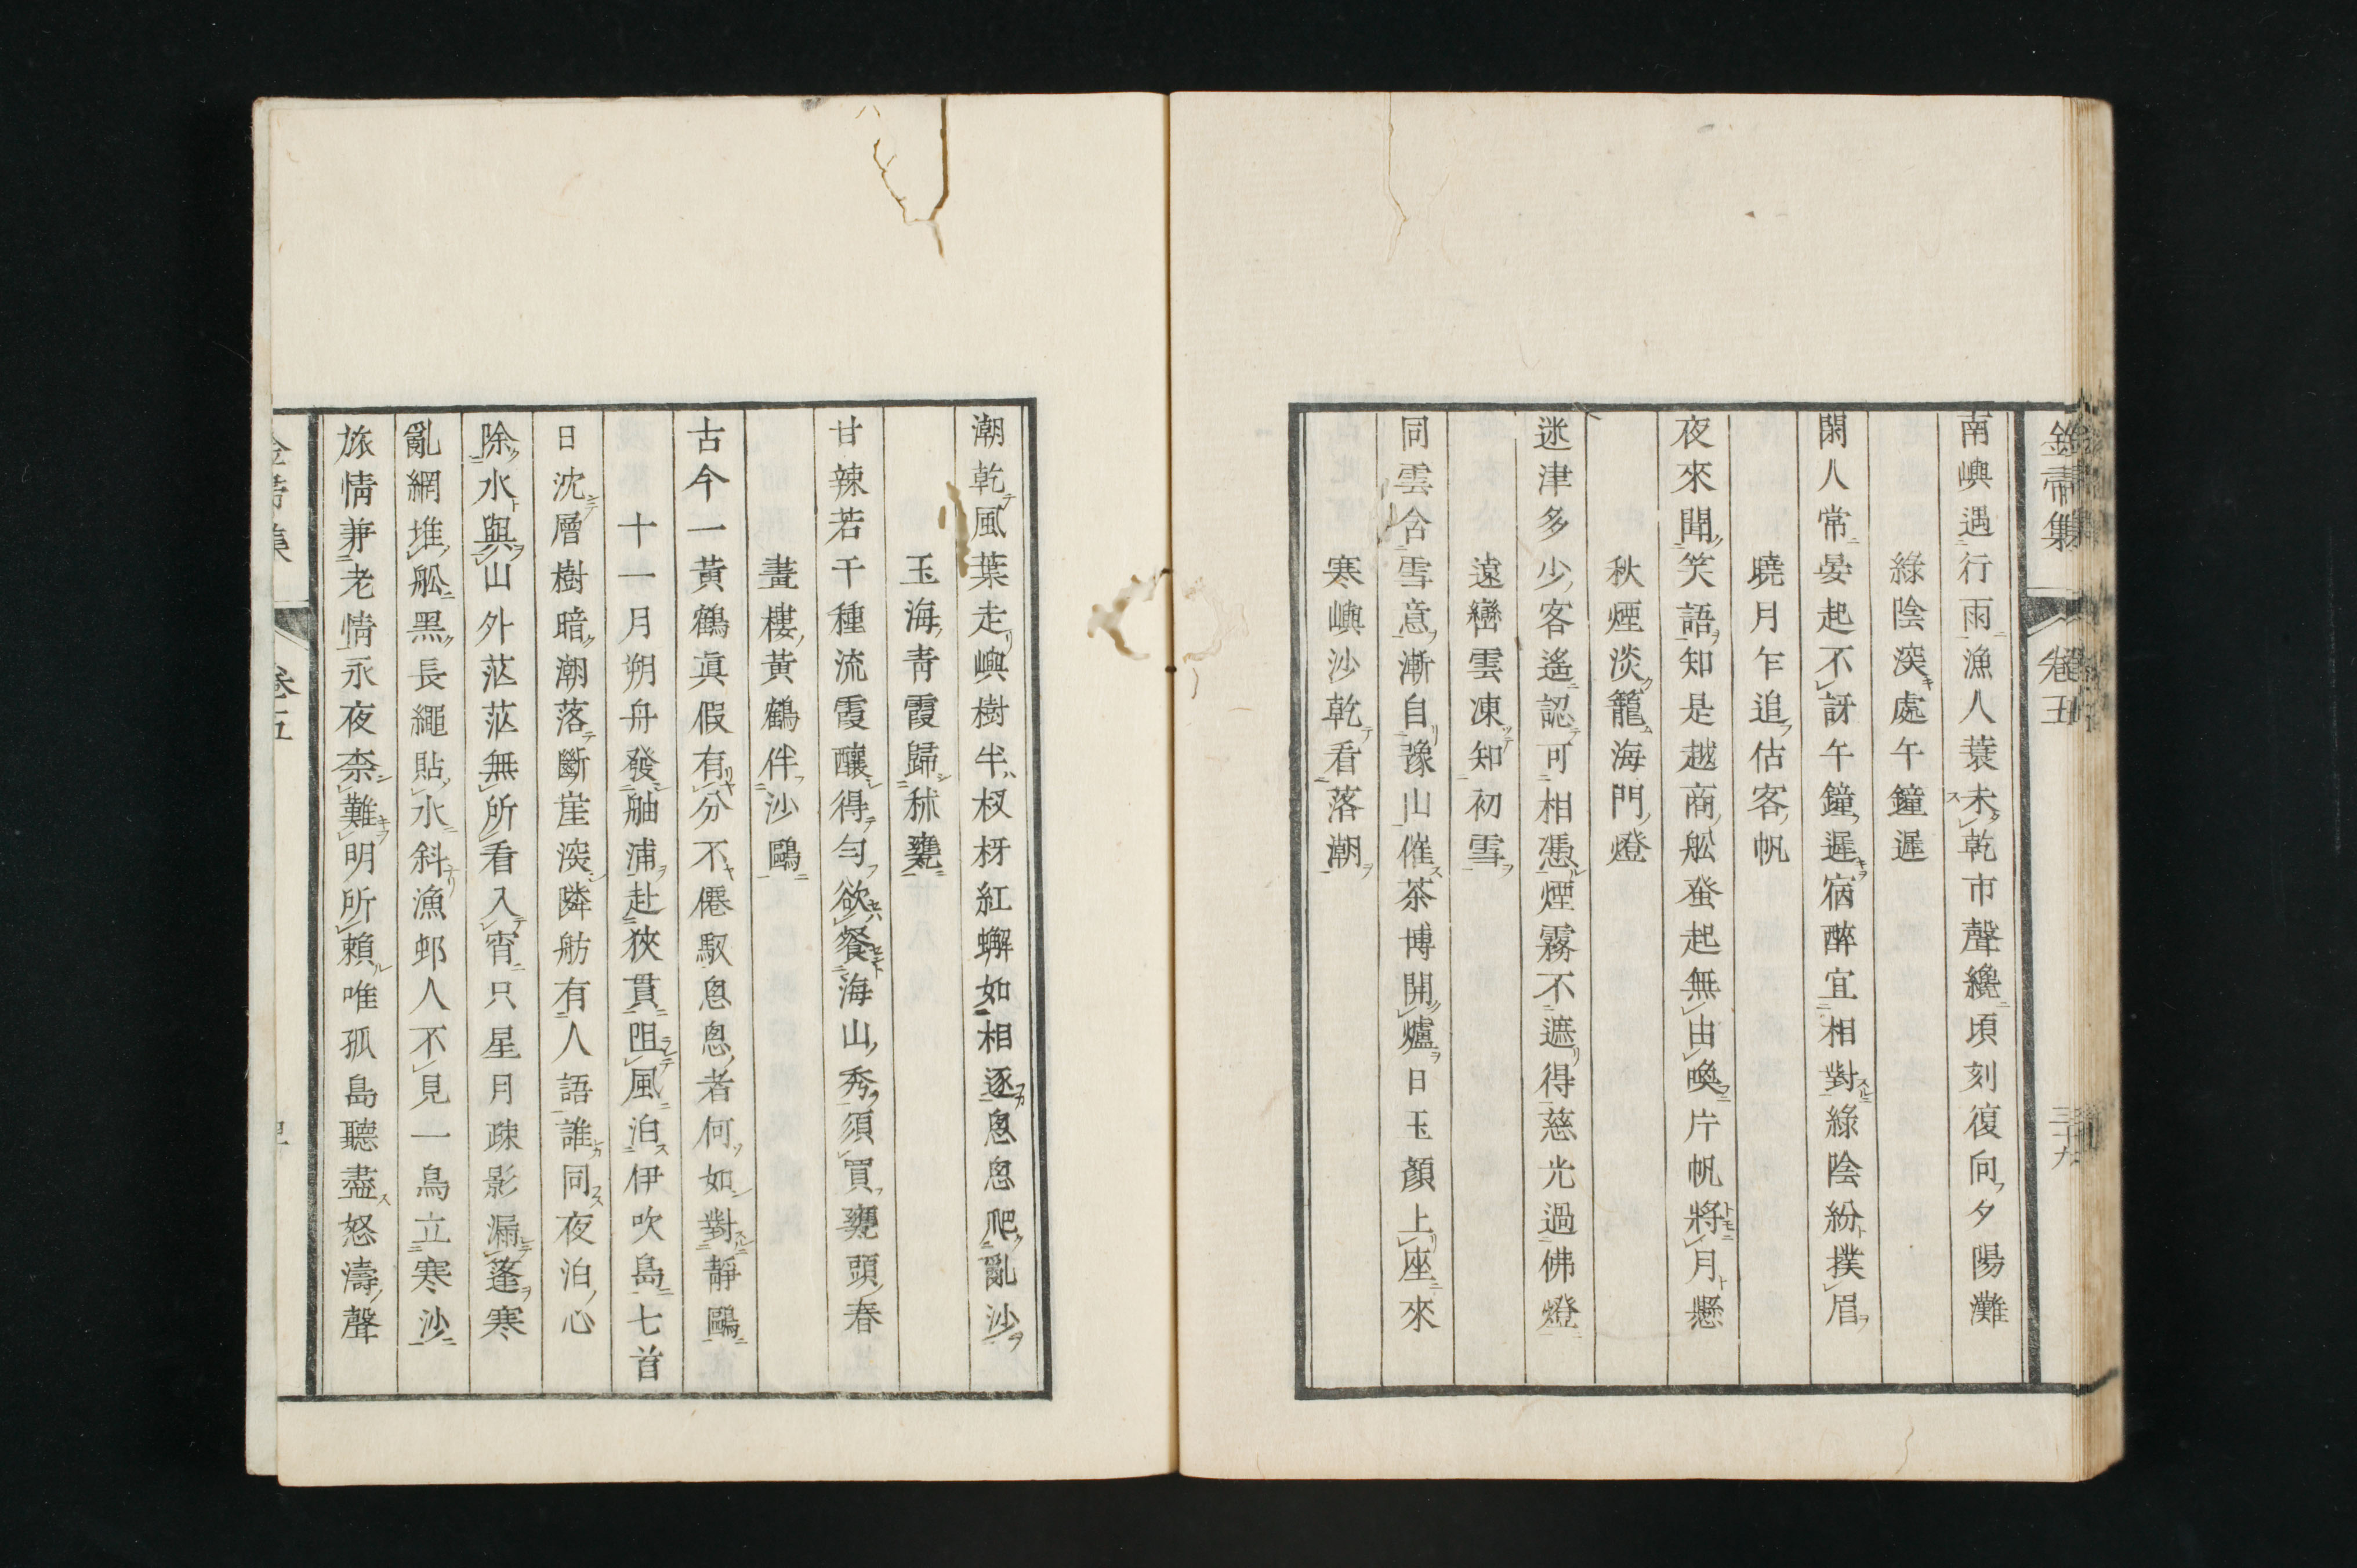 南嶼遇行雨漁人蓑未乾市聲纔頃刻復向夕陽灘
綠陰深處午鐘遲
閑人常晏起不訝午鐘遲病醉宜相對綠陰紛撲眉
曉月乍追估客帆
夜來聞笑語知是越商舩蚤起無由喚片帆將月懸
秋煙淡籠海門燈
迷津多少客遙認可相憑煙霧不遮得慈光過佛燈
遠巒雲凍知初雪
同雲含雪意漸自豫山催茶博開爐日玉顏上座來
寒嶼沙乾看落潮
潮乾風葉走嶼樹半杈枒紅蠏如相逐怱怱爬亂沙
玉海青霞歸秫甕
甘辣若干種流霞釀得勻欲餐海山秀須買甕頭春
畫樓黃鶴伴沙鷗
古今一黃鶴眞假有分不僊馭怱怱者何如對靜鷗
十一月朔舟發舳浦赴狹貫阻風泊伊吹島七首
日沈層樹暗潮落斷崖深隣舫有人語誰同夜泊心
除水與山外茫茫無所看入宵只星月疎影漏篷寒
亂網堆舩黑長繩貼水斜漁邨人不見一鳥立寒沙
旅情兼老情永夜柰難明所賴唯孤島聽盡怒濤聲
卷五